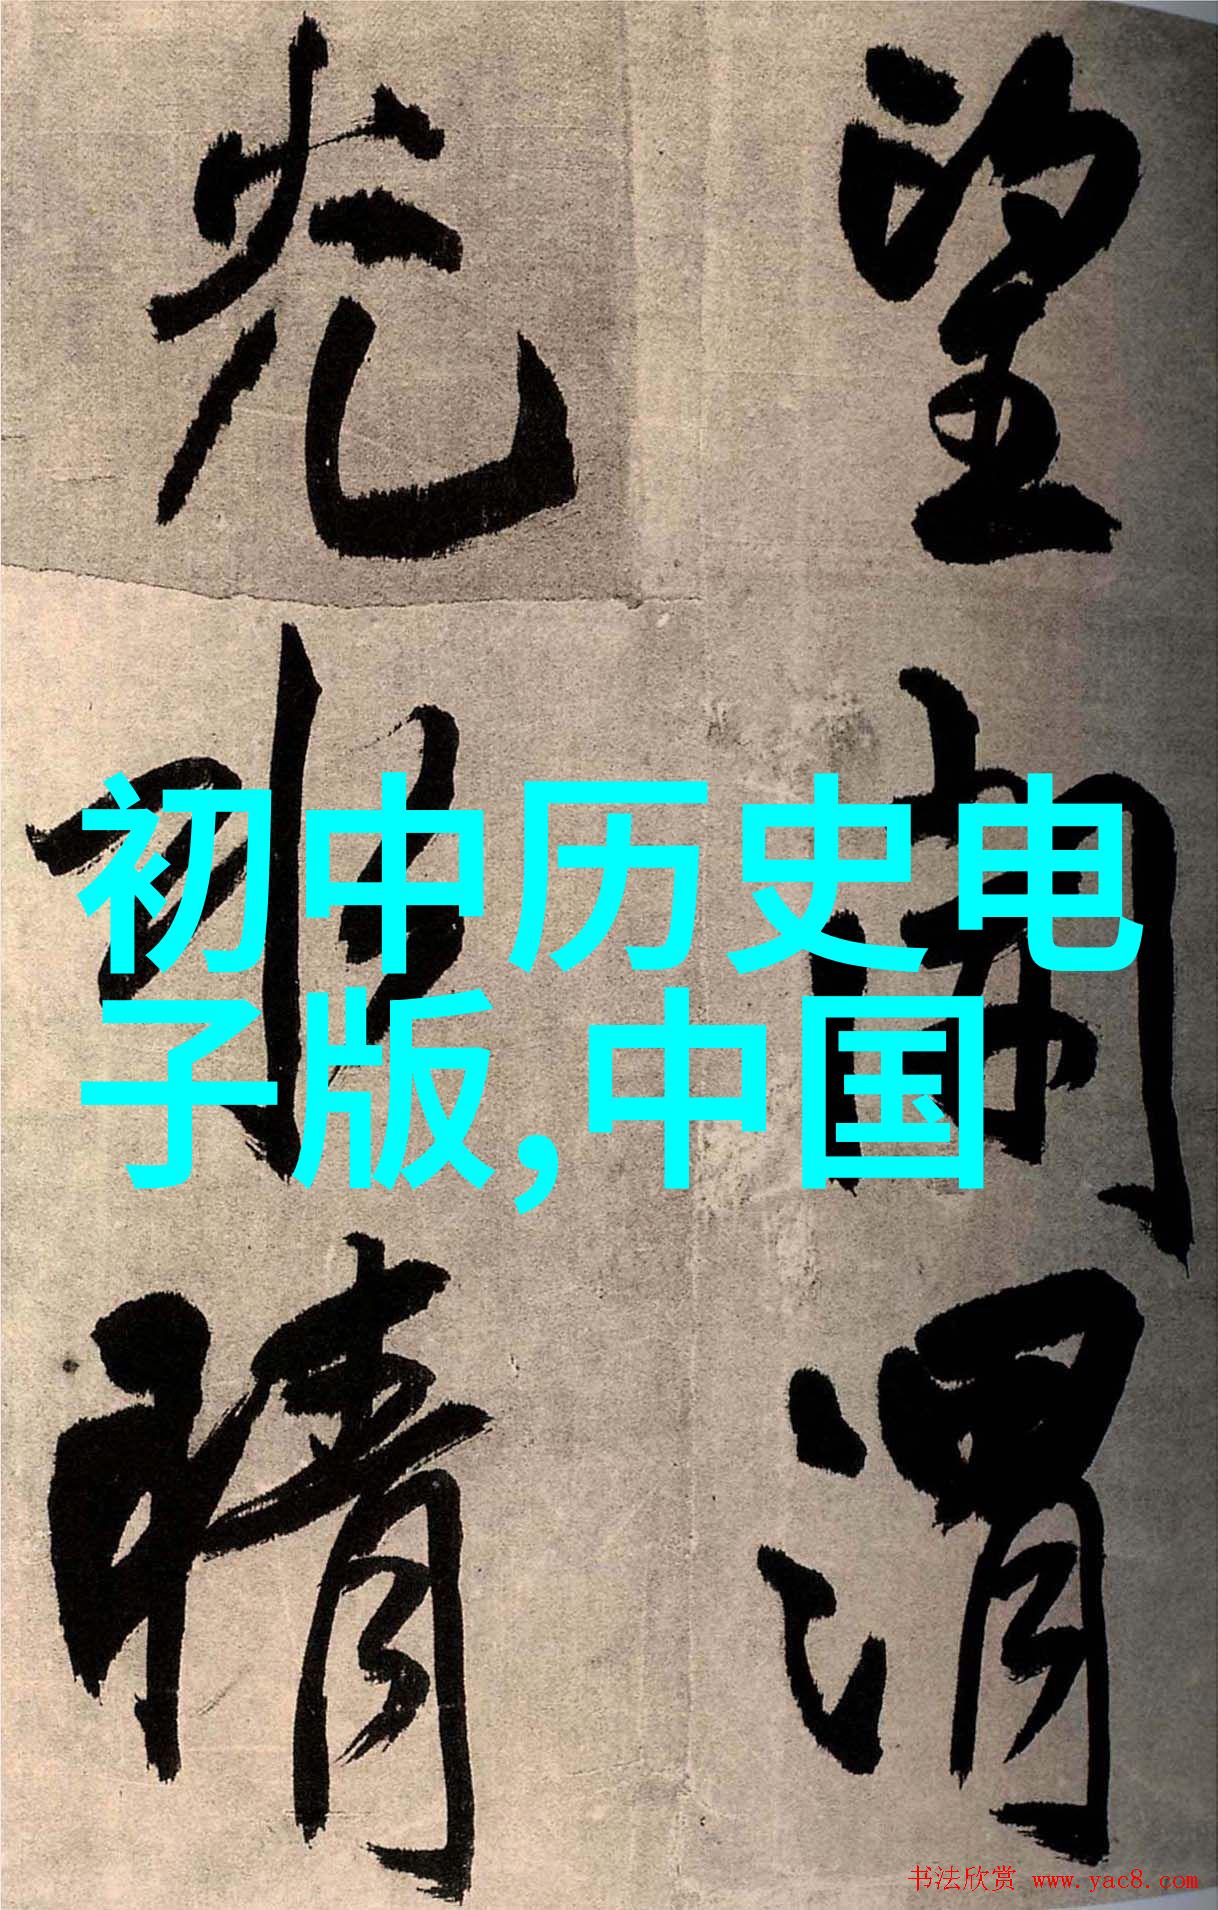 初中历史电
子版,中国
望渭
光晴
书法欣赏 www.yac8.com